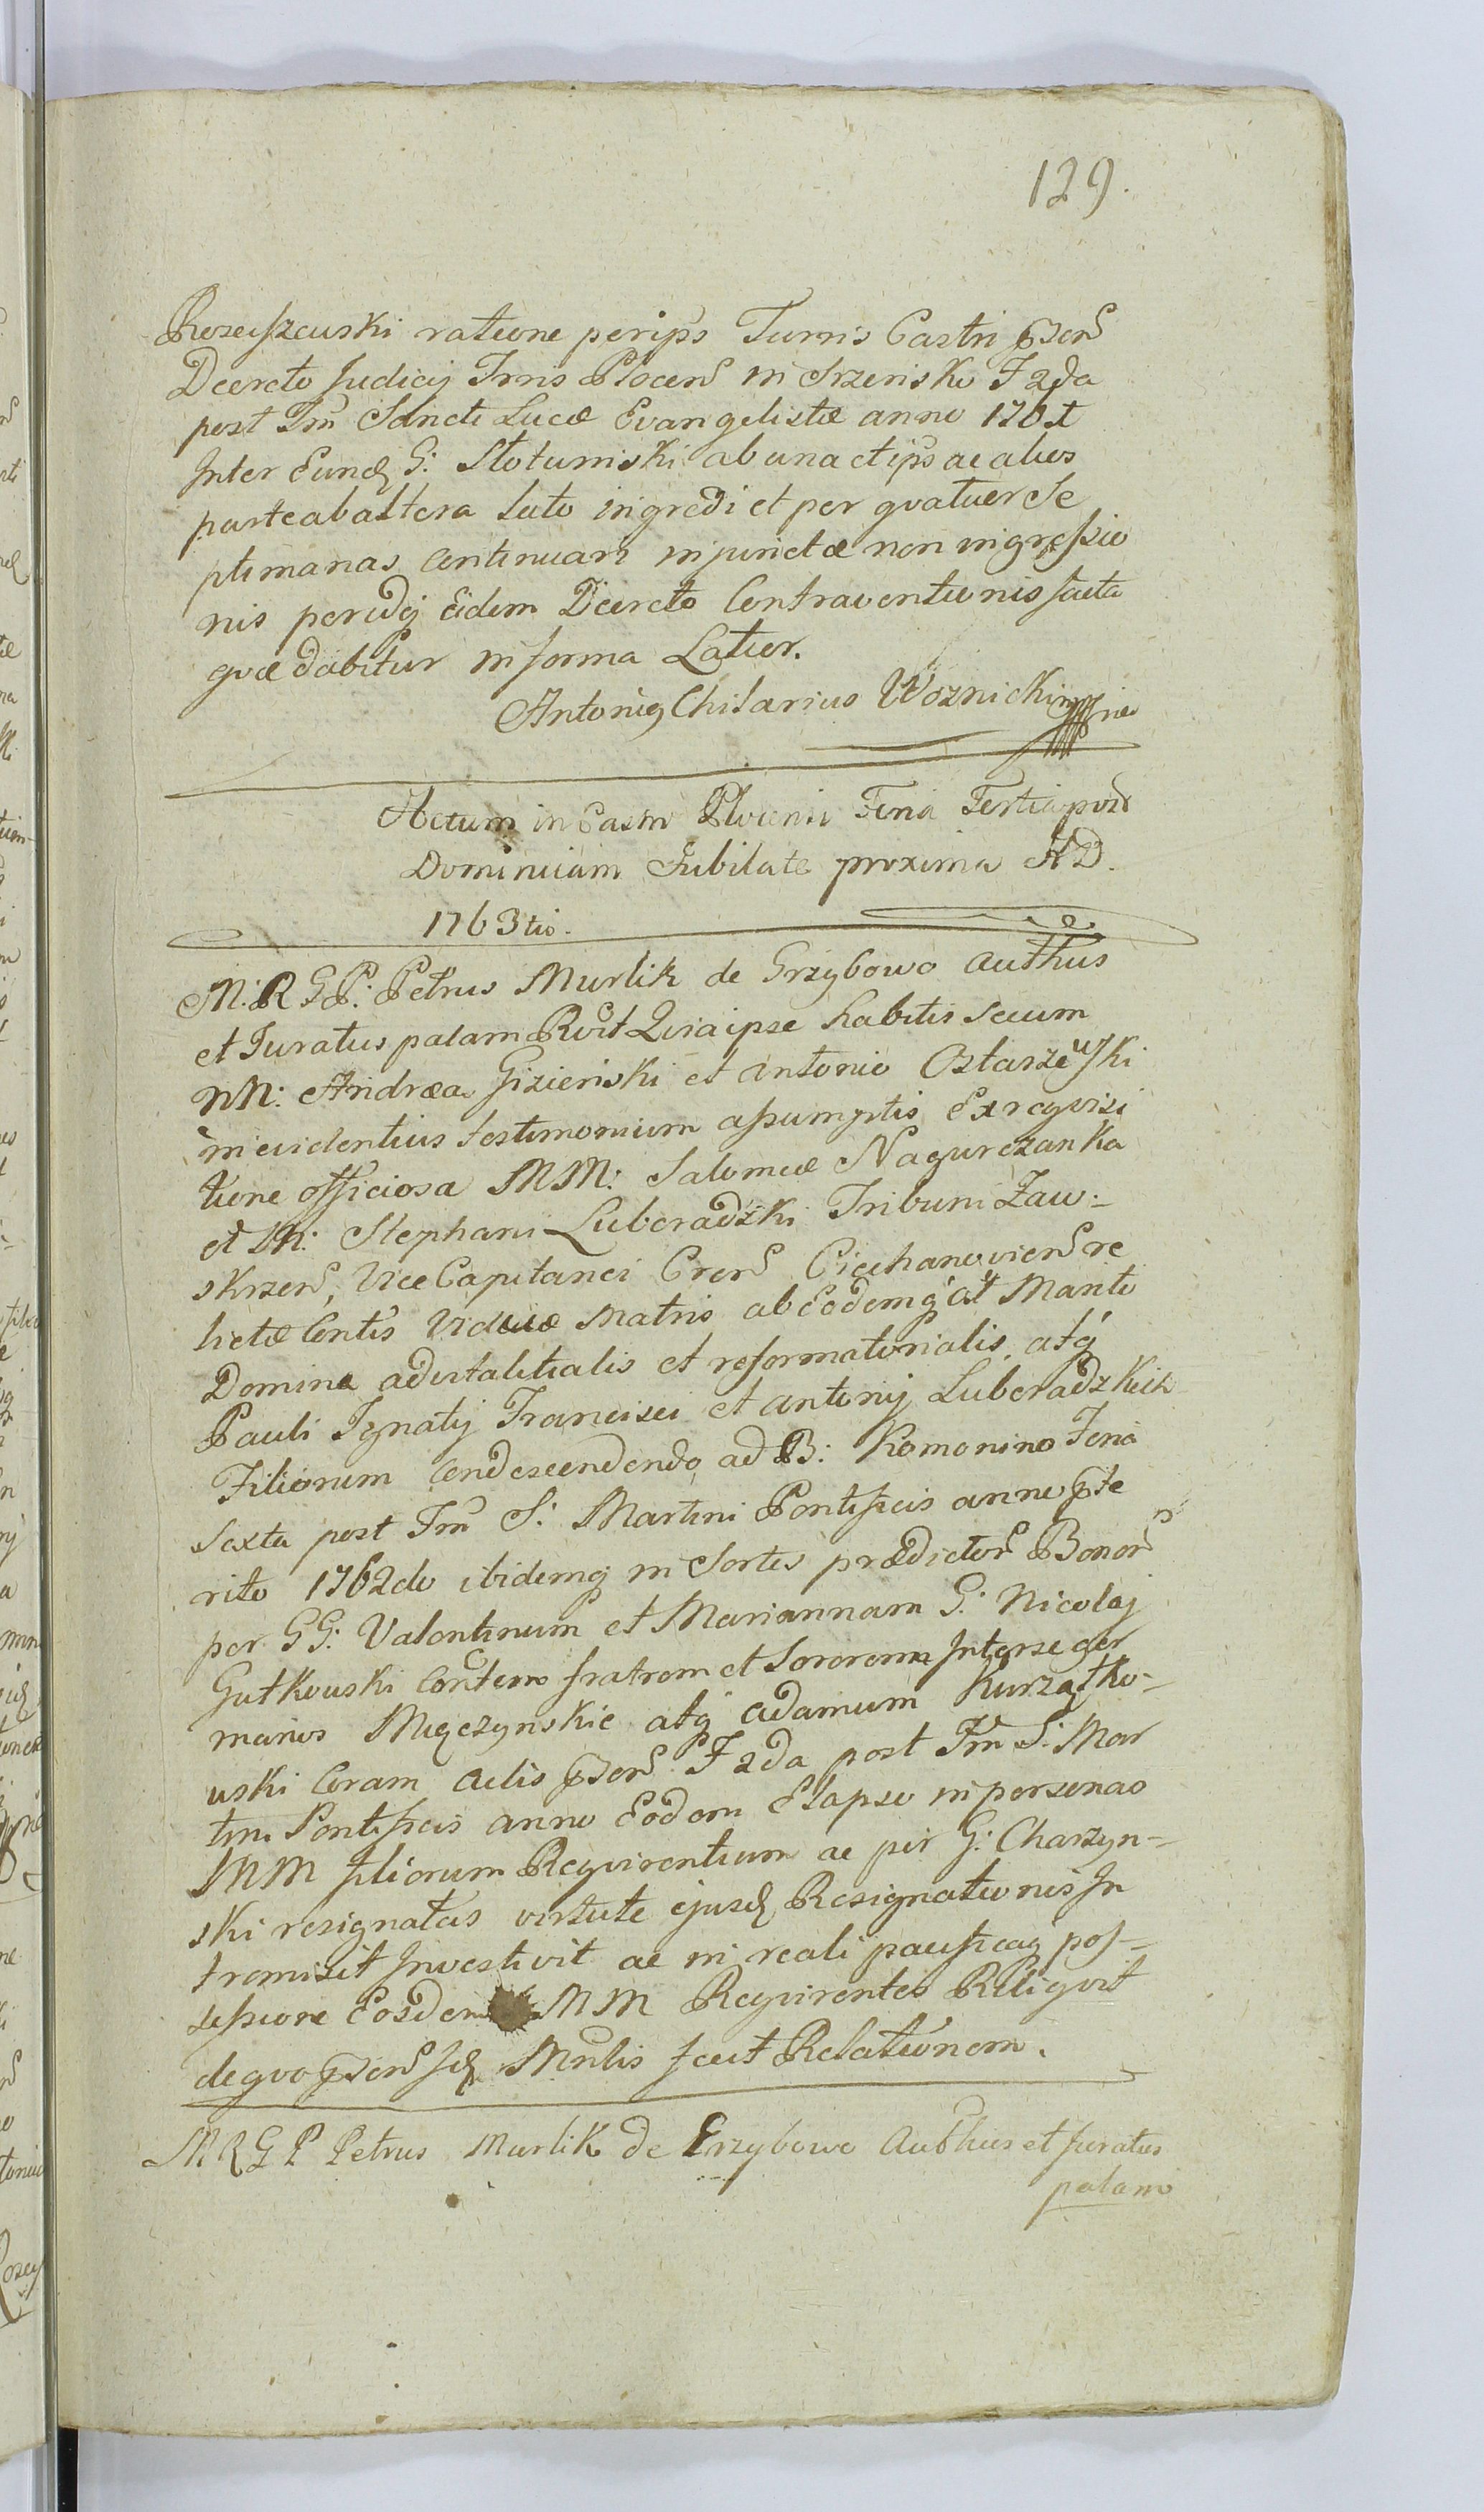 129.
Rosciszewski ratione per ips Turris Castri psens
Decreto Judicij Trris Plocens in Srzensko F 2da
post Fm Sancti Lucæ Evangelistæ anno 1761
Inter Eund G: Slotumski ab una et ips ac alios
parte ab altera lato ingredi et per qvatuor Se
ptimanas continuari injunctæ non ingressio
nis peridq Eidem Decreto Contraventionis facta
qvæ dabitur in forma Latior.
Antonius Chilarius Woznicki mppria
Actum in Castro Plocensi Feria Tertia post
Dominicam Jubilate proxima A D.
1763 tio.
M: R G P: Petrus Murlik de Grzybowo Authus
et Juratus palam Rcit Qvia ipse habitis secum
NN: Andrea Gizienski et Antonio Ostarzewski
in evidentius testimonium assumptis Ex reqvisi
tione officiosa MM: Salomeæ Nagurczanka
et M: Stephani Luberadzki Tribuni Zaw-
skrzens, Vice Capitanei Crens Ciechanoviens re
lictæ Contis Viduæ Matris ab Eodemq olt Marito
Domina advitalitialis et reformatorialis atq
Pauli Ignatij Francisci et Antonij Luberadzkich
Filiorum condescendendo ad B: Komonino Feria
Sexta post Fm S: Martini Pontificis anno pte
rito 1762do ibidemq in Sortes prædictors Bonors
per GG: Valentinum et Mariannam G: Nicolaj
Gutkowski Contem fratrem et Sororem Inter se ger
manos Męczynskie atq Adamum Kurzątko-
wski Coram Actis psens F 2da post Fm S: Mar
tini Pontificis anno Eodem Elapso in personas
MM filiorum Reqvirentium ac per G: Charzyn-
ski resignatas virtute ejusd Resignationis In
tromisit Investivit ac in reali pacificaq pos-
sessione Eosdem MM Reqvirentes Reliqvit
de qvo psens sd Mnlis fecit Relationem.
M R G P Petrus Murlik de Grzybowo Authus et Juratus
palam